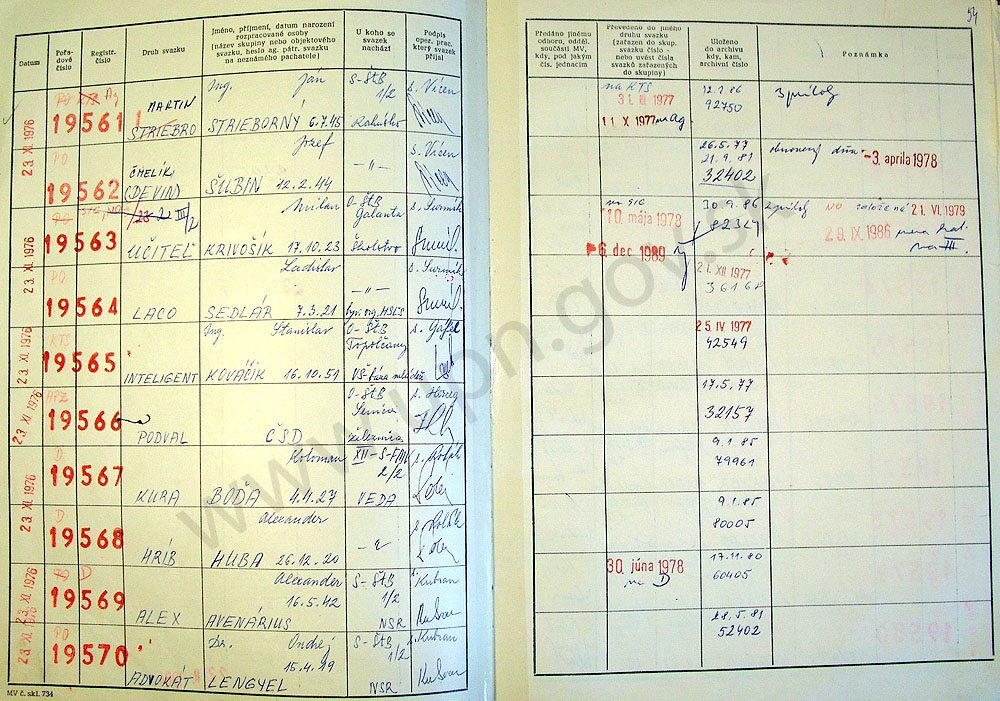 54
Datum
Pořadové číslo
Registr. číslo
Druh svazku
Jméno, příjmení, datum narození rozpracované osoby (název skupiny nebo objektového svazku, heslo ag. pátr. svazku na neznámého pachatele)
U koho se svazek nachází
Podpis oper. prac. který svazek přijal
Předáno jinému odboru, odděl. součásti MV, kdy, pod jakým čís. jednacím
Převedeno do jiného druhu svazku (zařazen do skup. svazku číslo - nebo uvést čísla svazků zařazených do skupiny)
Uloženo do archivu kdy, kam, archivní číslo
Poznámka
23. XI. 1976
PO KTS Ag
19561
MARTIN
STRIEBRO
Ing. Jan
STRIEBORNÝ 6.7.45
S-ŠtB
1/2
s. Vícen
na KTS
11 X 1977 na Ag
12.1.86
92750
3 príloh
PO
19562
ČMELÍK
(DEVIN)
Jozef
ŠUBIN 12.2.44
-"-
s. Vícen
26.5.77
21.9.81
32402
-3. apríla 1978
23. XI. 1976
PO
19563
UČITEĽ
Milan
KRIVOŠÍK 17.10.23
O-ŠtB
Galanta
Školstvo
10. mája 1978
6. dec 1989
30.9.86
82327
21. VI. 1979
29. IX 1986
23. XI. 1976
PO
19564
LACO
Ladislav
SEDLÁR 7.3.21
-"-
21. XII 1977
36168
23. XI. 1976
KTS
19565
INTELIGENT
Ing. Stanislav
KOVÁČIK 16.10.51
O-ŠtB
Topoľčany
25. IV 1977
42549
23. XI. 1976
19566
PODVAL
ČSD
O-ŠtB
Senica
železnica
17.5.77
32157
23. XI. 1976
D
19567
KURA
Koloman
BODA 4.4.27
XII-S-FMV
2/2
VEDA
9.1.85
79961
23. XI. 1976
D
19568
HRÍB
Alexander
HUBA 26.12.20
9.1.85
80005
23. XI. 1976
PO D
19569
ALEX
Alexander
16.5.42
AVENÁRIUS
S-ŠtB
1/2
NSR
s. Kubran
30. júna 1978
na D
17.11.80
60405
23. XI. 1976
PO
19570
ADVOKÁT
Dr. Ondrej
15.4.19
LENGYEL
S-ŠtB
1/2
NSR
s. Kubran
28.5.81
52402
MV č. skl. 734
www.upn.gov.sk